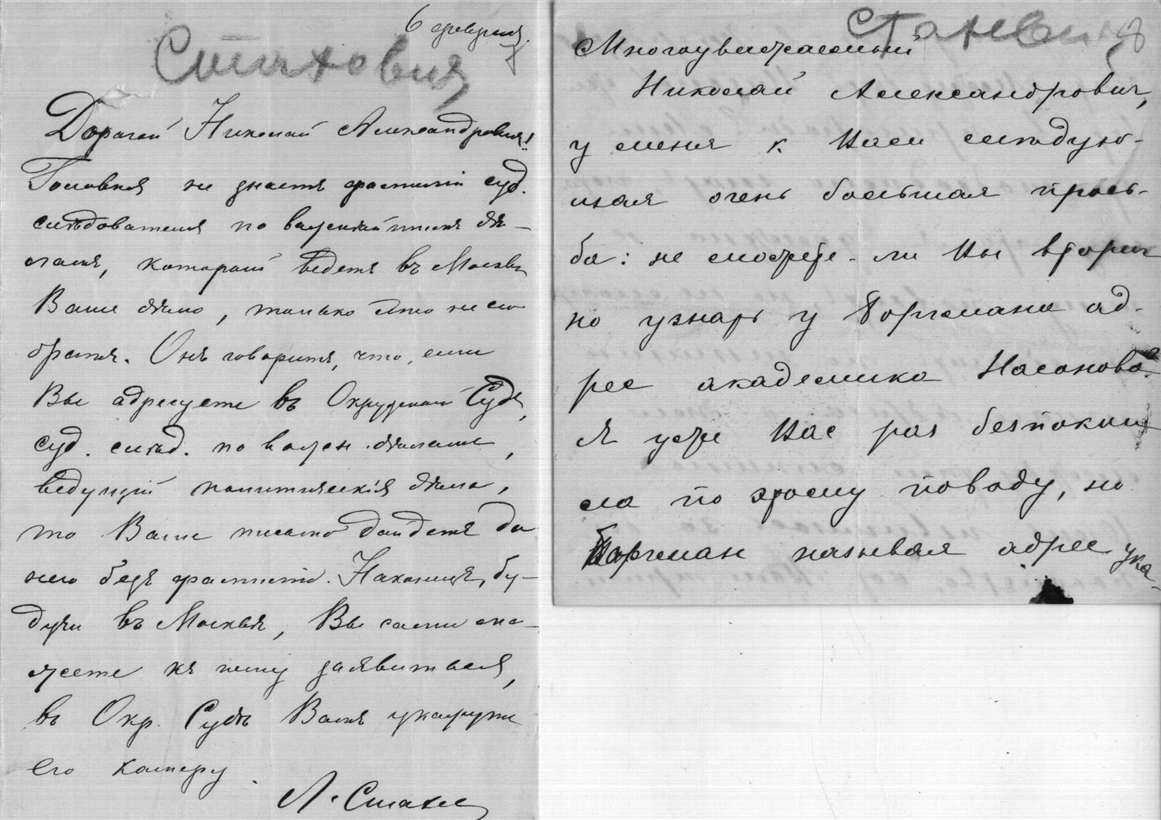 6 февраля.
Стахович
Дорогой Николай Александровичъ!
Головня не знаетъ фамилiи суд.
слѣдователя по важнѣйшимъ дѣ-
ламъ, который ведетъ въ Москвѣ
Ваше дѣло, только это не
Онъ говоритъ, что, если
Вы адресуете въ Окружной Судъ,
суд. слѣд. по важн. дѣламъ,
ведущiй политическiя дѣла,
то Ваше письмо дойдетъ до
него безъ фамилiи. Наконецъ, бу-
дучи въ Москвѣ, Вы сами смо-
жете къ нему заявиться,
въ Окр. Судѣ Вамъ укажутъ
его камеру.
Л. Стахов
Станевич
8
Многоуважаемый
Николай Александрович,
у меня к Вам следую-
щая очень большая прось-
ба: не сможете-ли Вы вторич
но узнать у Боргмана ад-
рес академика Насонова?
Я уже Вас раз безпокои
ла по этому поводу, но
Боргман называя адрес ука-